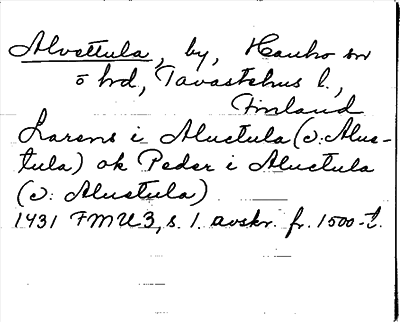 Alvettula, by, Hauho sn
ö hd, Tavastehus l.,
Finland
Larens i Aluctula (ɔ: Alus-
tula) ok Peder i Aluctula
(ɔ: Alustula)
1431 FMU 3, s. 1. avskr. fr. 1500-t.